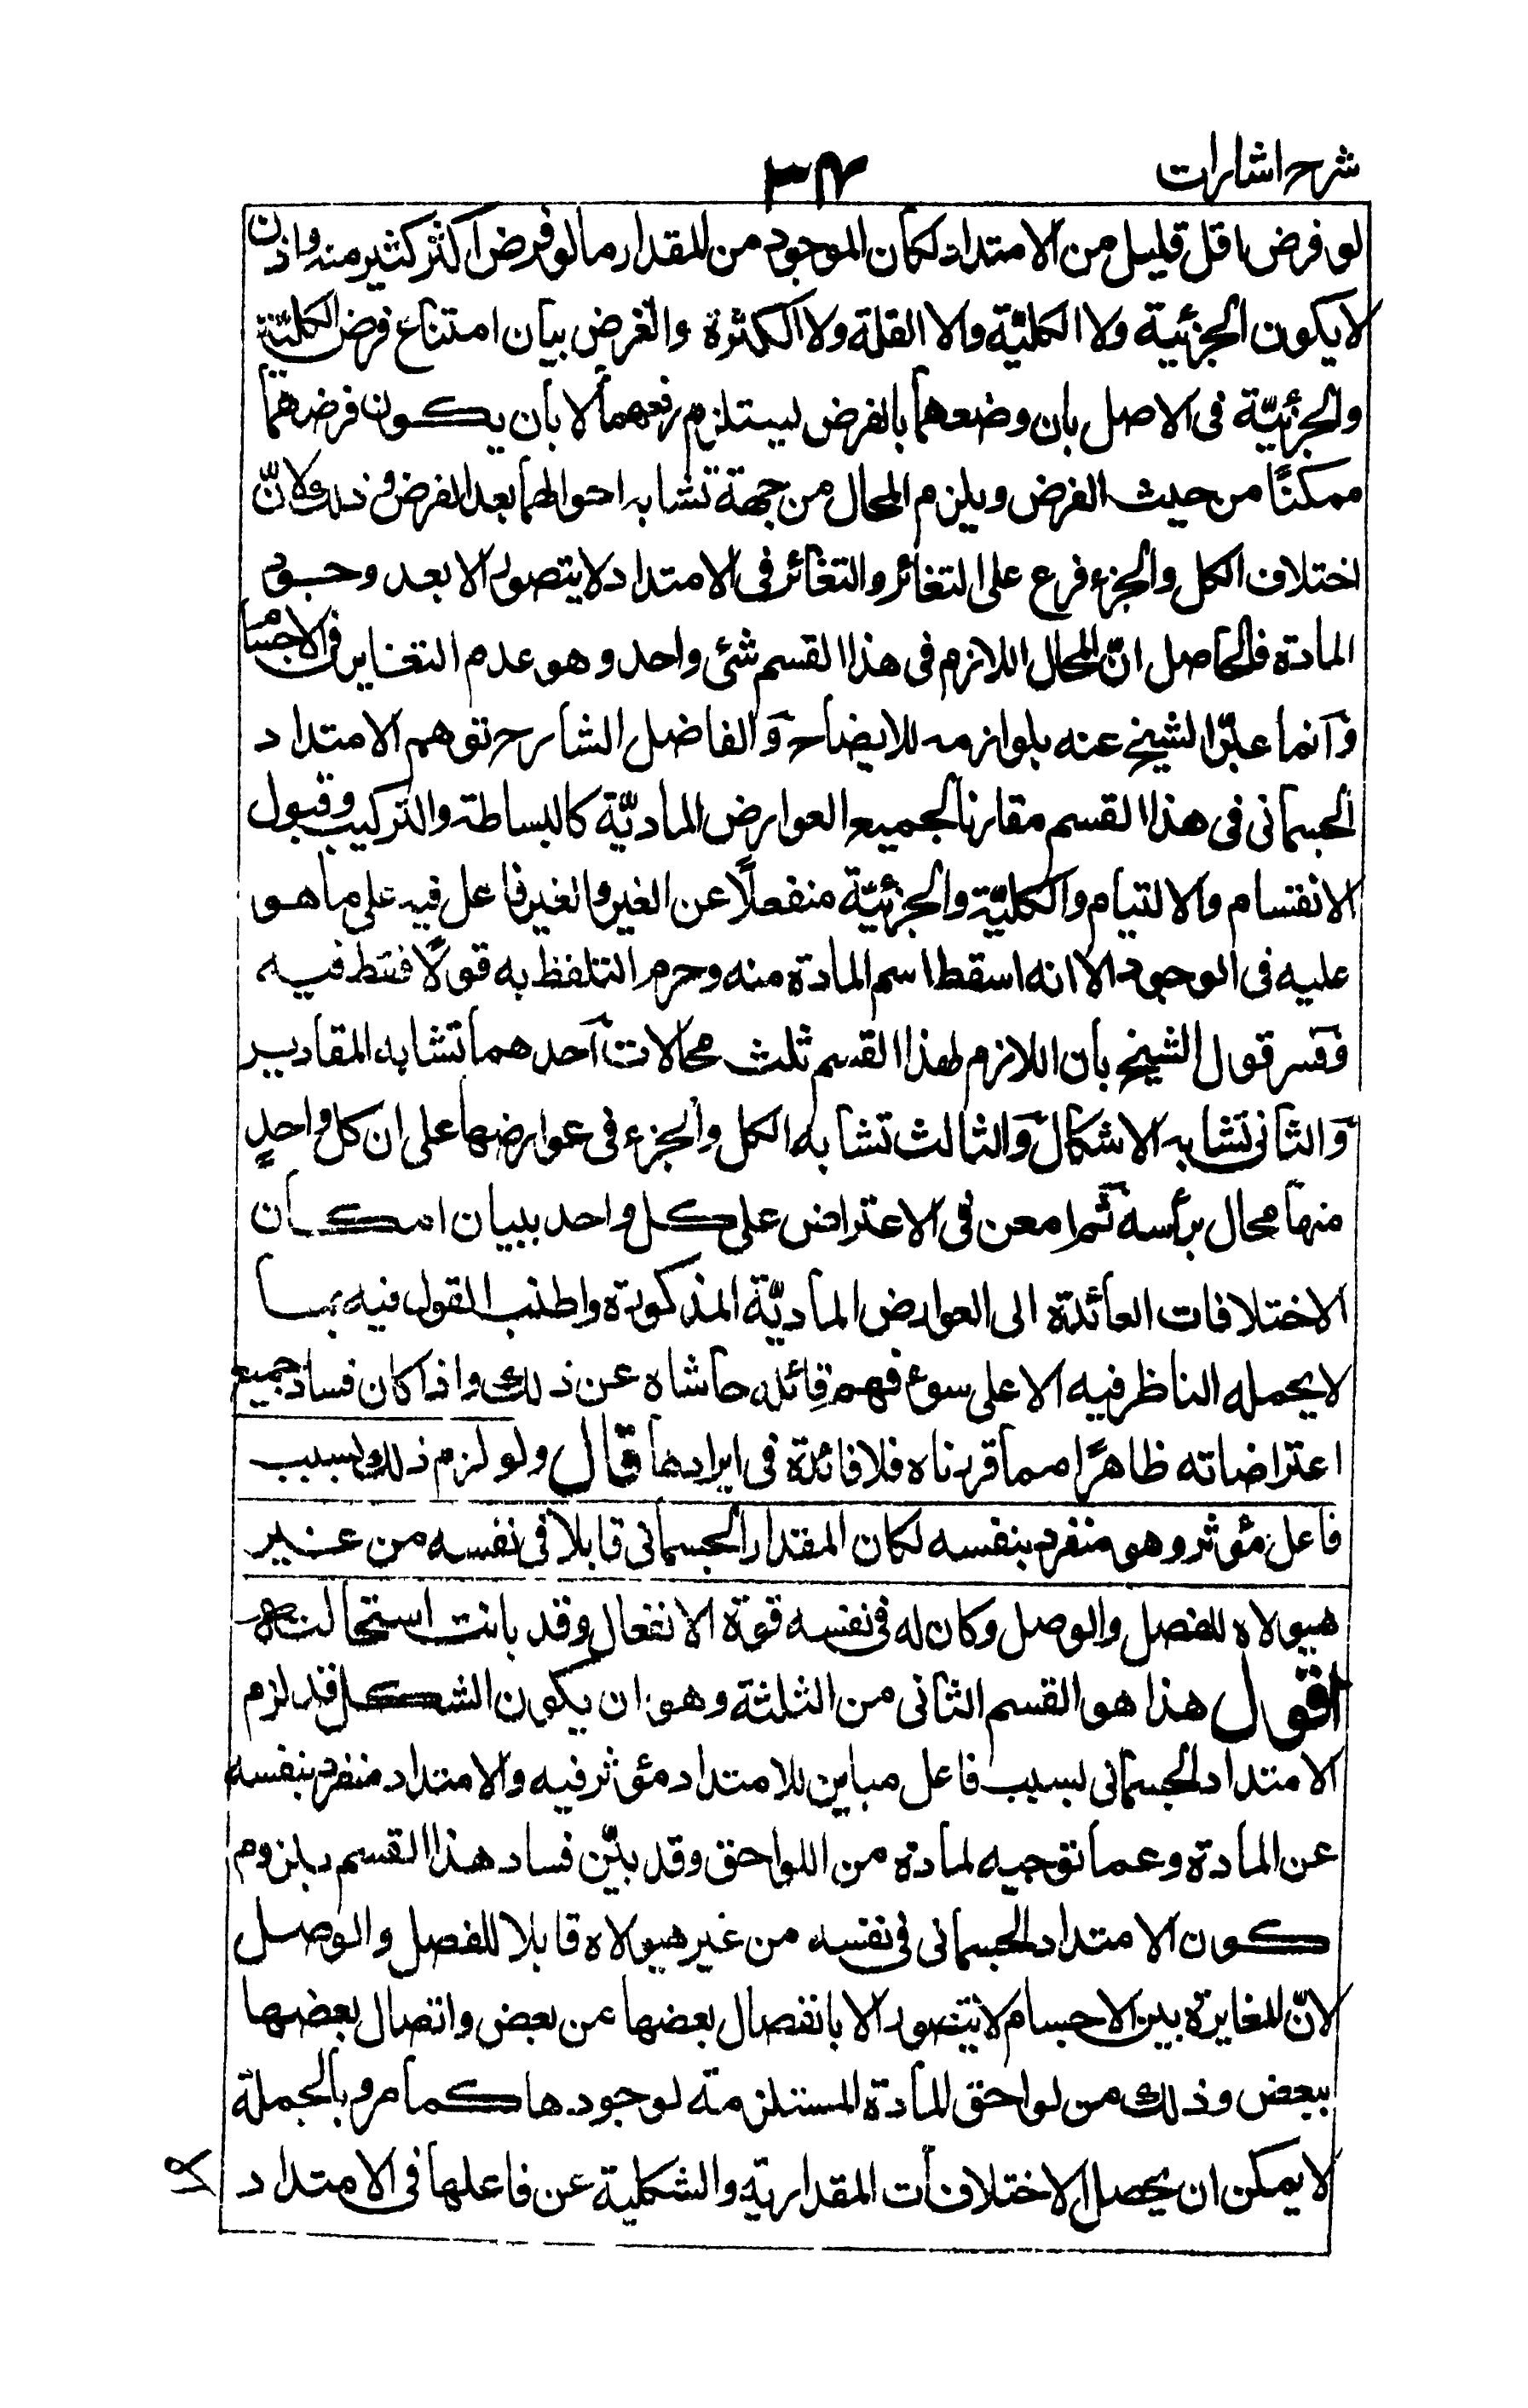 شرح اشارات
٣٤
لو فرض اقل قليل من الامتداد لكان الموجود من المقدار ما لو فرض اكثر كثير منه واذن
لا يكون الجزئية ولا الكلية ولا القلة ولا الكثرة والغرض بيان امتناع فرض الكلية
والجزئيّة فى الاصل بان وضعهما بالفرض ليستلزم رفعهما لا بان يكون فرضهما
ممكنًا من حيث الفرض ويلزم المحال من جهة تشابه احوالهما بعد الفرض وذلك لانّ
اختلاف الكل والجزء فرع على التغائر والتغائر فى الامتداد لا يتصور الا بعد وجود
المادة فالحاصل انّ المحال اللازم فى هذا القسم شئ واحد وهو عدم التغاير فى الاجسام
وَانما عبّر الشيخ عنه بلوازمه للايضاح وَالفاضل الشارح توهم الامتداد
الجسمانى فى هذا القسم مقارنا لجميع العوارض الماديّة كالبساطة والتركيب وقبول
الانقسام والالتيام والكليّة والجزئيّة منفعلًا عن الغير والغير فاعل فيه على ما هو
عليه فى الوجود الا انه اسقط اسم المادة منه وحرم التلفظ به قولًا فقط فيه
وَفسر قول الشيخ بان اللازم لهذا القسم ثلث محالات آحدهما تشابه المقادير
وَالثانى تشابه الاشكال وَالثالث تشابه الكل والجزء فى عوارضها على ان كل واحدٍ
منها محال برأسه ثم امعن فى الاعتراض على كل واحد ببيان امكان
الاختلافات العائدة الى العوارض الماديّة المذكورة واطنب القول فيه بما
لا يحمله الناظر فيه الا على سوء فهم قائله حاشاه عن ذلك واذا كان فساد جميع
اعتراضاته ظاهرًا مما قررناه فلا فائدة فى ايرادها قال ولو لزم ذلك بسبب
فاعل مؤثر وهو منفرد بنفسه لكان المقدار الجسمانى قابلا فى نفسه من غير
هيولاه للفصل والوصل وكان له فى نفسه قوة الانفعال وقد بانت استحالته
اقول هذا هو القسم الثانى من الثلثة وهو ان يكون الشكل قد لزم
الامتداد الجسمانى بسبب فاعل مباين للامتداد مؤثر فيه والامتداد منفرد بنفسه
عن المادة وعما توجبه لمادة من اللواحق وقد بيّن فساد هذا القسم بلزوم
كون الامتداد الجسمانى فى نفسه من غير هيولاه قابلا للفصل والوصل
لانّ المغايرة بين الاجسام لا يتصور الا بانفصال بعضها عن بعض واتصال بعضها
ببعض وذلك من لواحق المادة المستلزمة لوجودها كما مر وبالجملة
لا يمكن ان يحصل الاختلافات المقدارية والشكلية عن فاعلها فى الامتداد